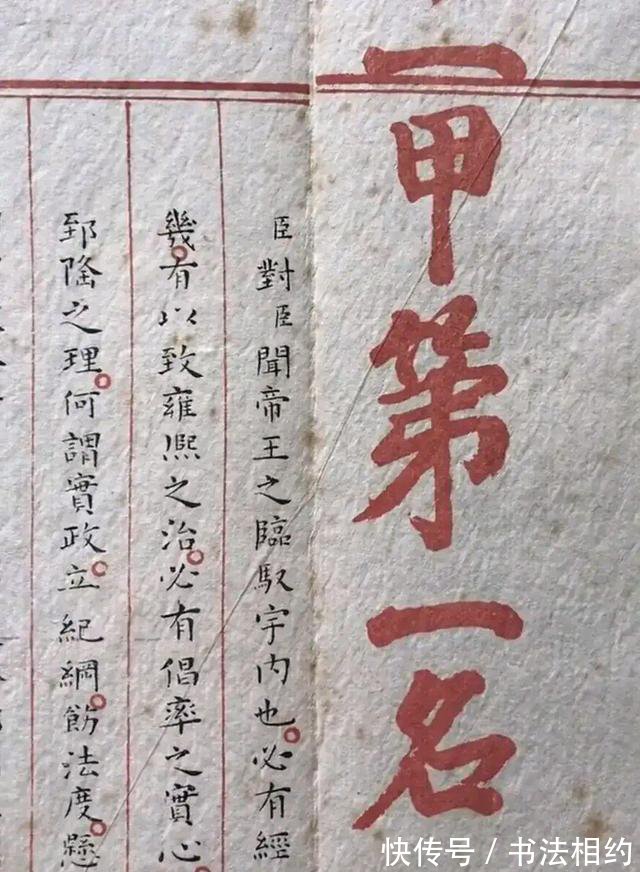 一甲第一名
臣對臣聞帝王之臨馭宇内也必有經
幾有以致雍熙之治必有倡率之實心
郅隆之理何謂實政立紀綱飭法度懸
快传号 / 书法相约